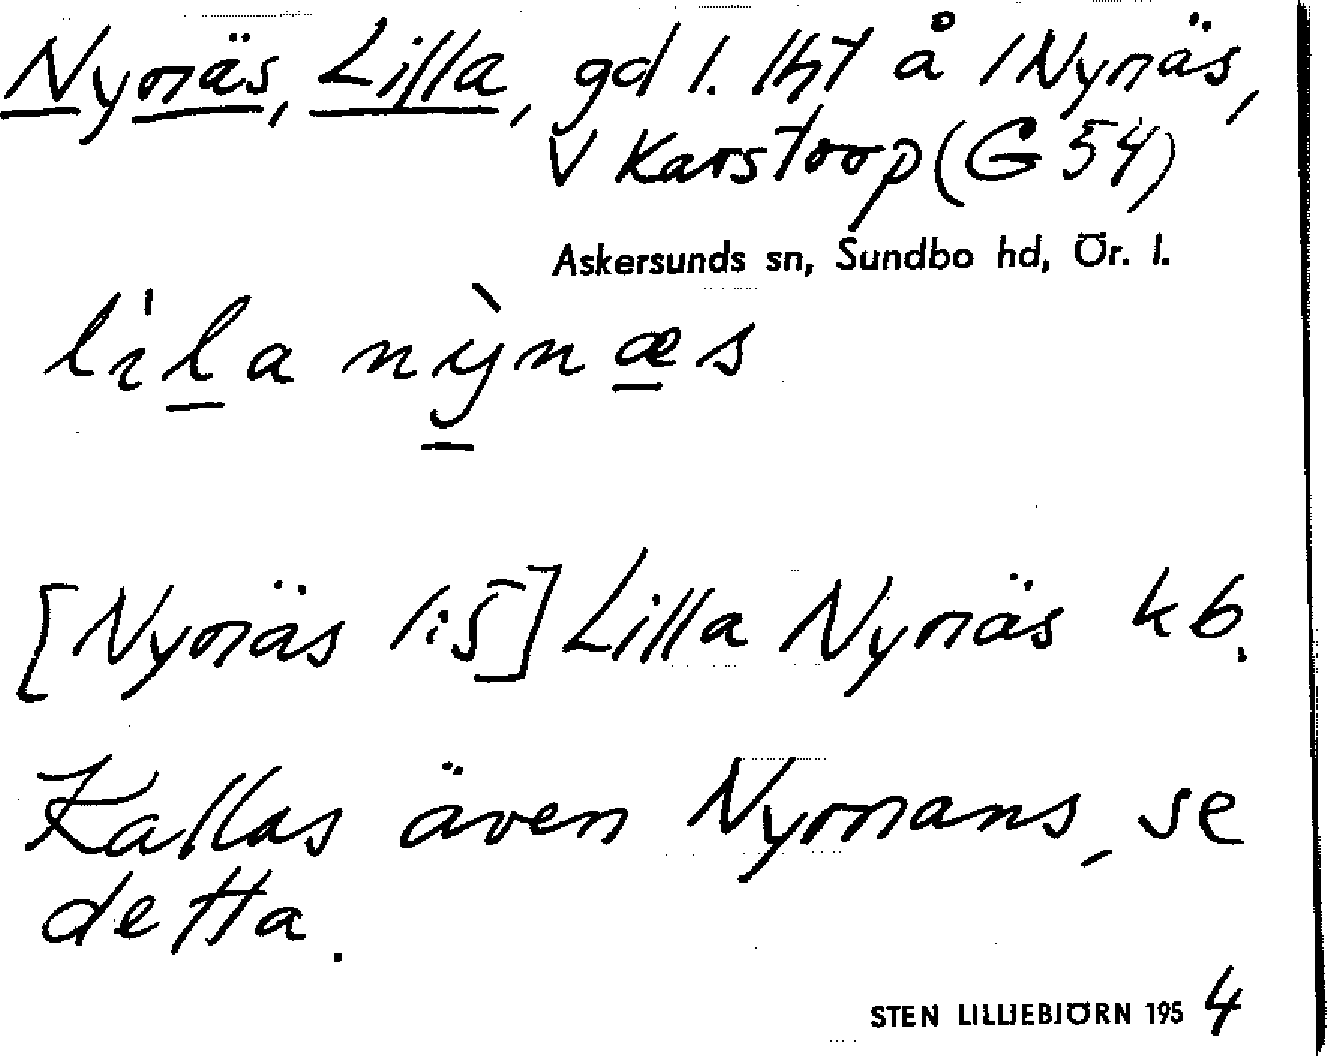 Nynäs, Lilla, gd l. lht å 1 Nynäs,
V Karstorp (G 54)
Askersunds sn, Sundbo hd, Ör. l.
lila nỳnæs
[Nynäs l:5] Lilla Nynäs kb.
Kallas även Nymans, se
detta.
STEN LILLJEBJÖRN 1954